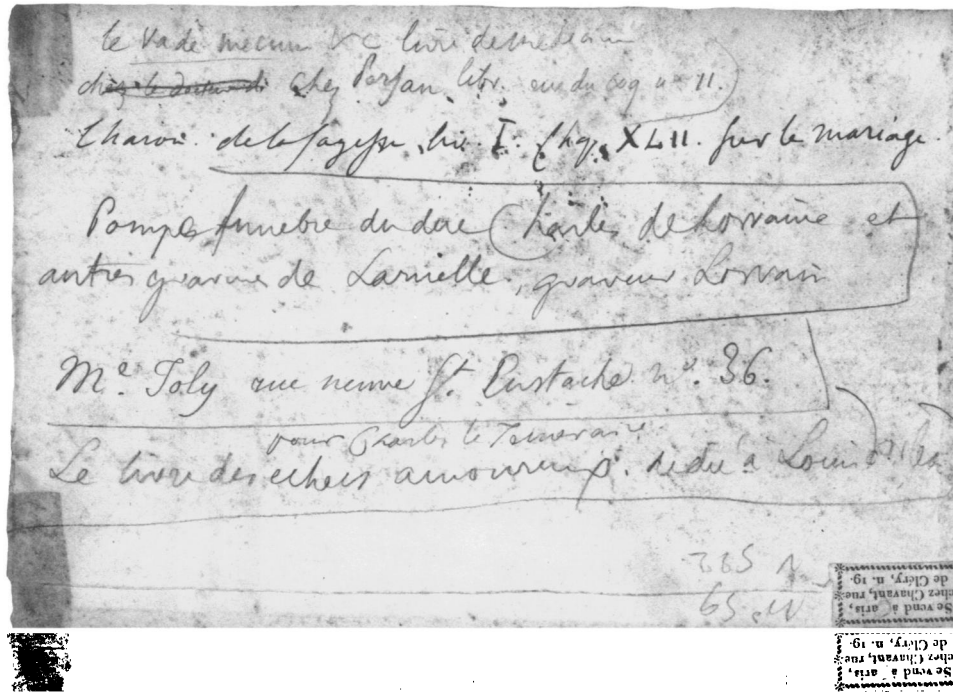 le Vade mecum &c livre de medecin
chez le docteur di chez Persan libr. rue du coq n° 11.
Charon. de la sagesse, liv. I. Chap. XLII. sur le mariage.
Pompe funebre du duc Charles de Lorraine et
autres gravures de Laruelle, graveur Lorrain
Me. Joly rue neuve St. Eustache n°. 36.
pour Charles le Temeraire
Le livre des echecs amoureux. dedié à Louis
Se vend à Paris,
chez Chavant, rue
de Cléry, n. 19.
Se vend à Paris,
chez Chavant, rue
de Cléry, n. 19.